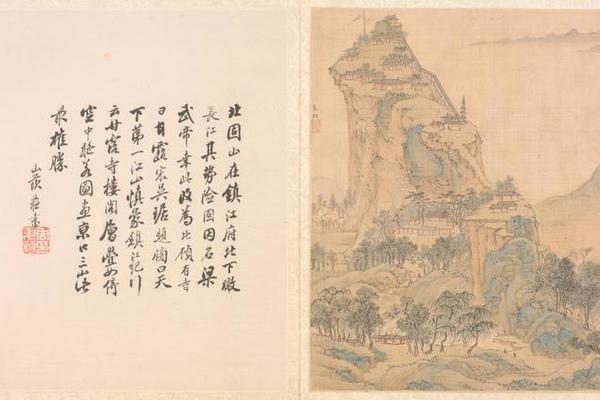 北固山在鎮江府北下瞰
長江其勢險固因名梁
武帝幸此改為北顧有寺
曰甘露宋吳琚題額曰天
下第一江山慎蒙鎮江紀行
云甘露寺樓閣層疊如倚
空中若圖畫京口三山
最雄勝